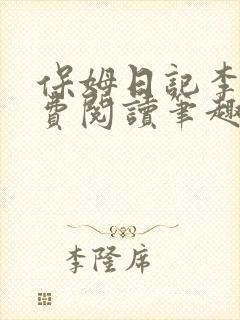 保姆日記李
費閱讀筆趣
李隆席